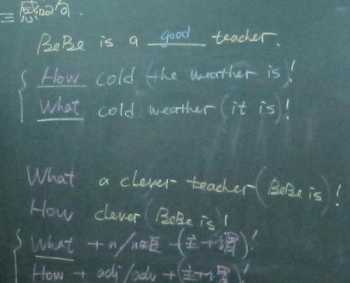 三.感叹句.
BeBe is a good teacher.
How cold (the weather is)!
What cold weather (it is)!
What a clever teacher (BeBe is)!
How clever (BeBe is)!
What + n/n短 + (主+谓)!
How + adj/adv + (主+谓)!